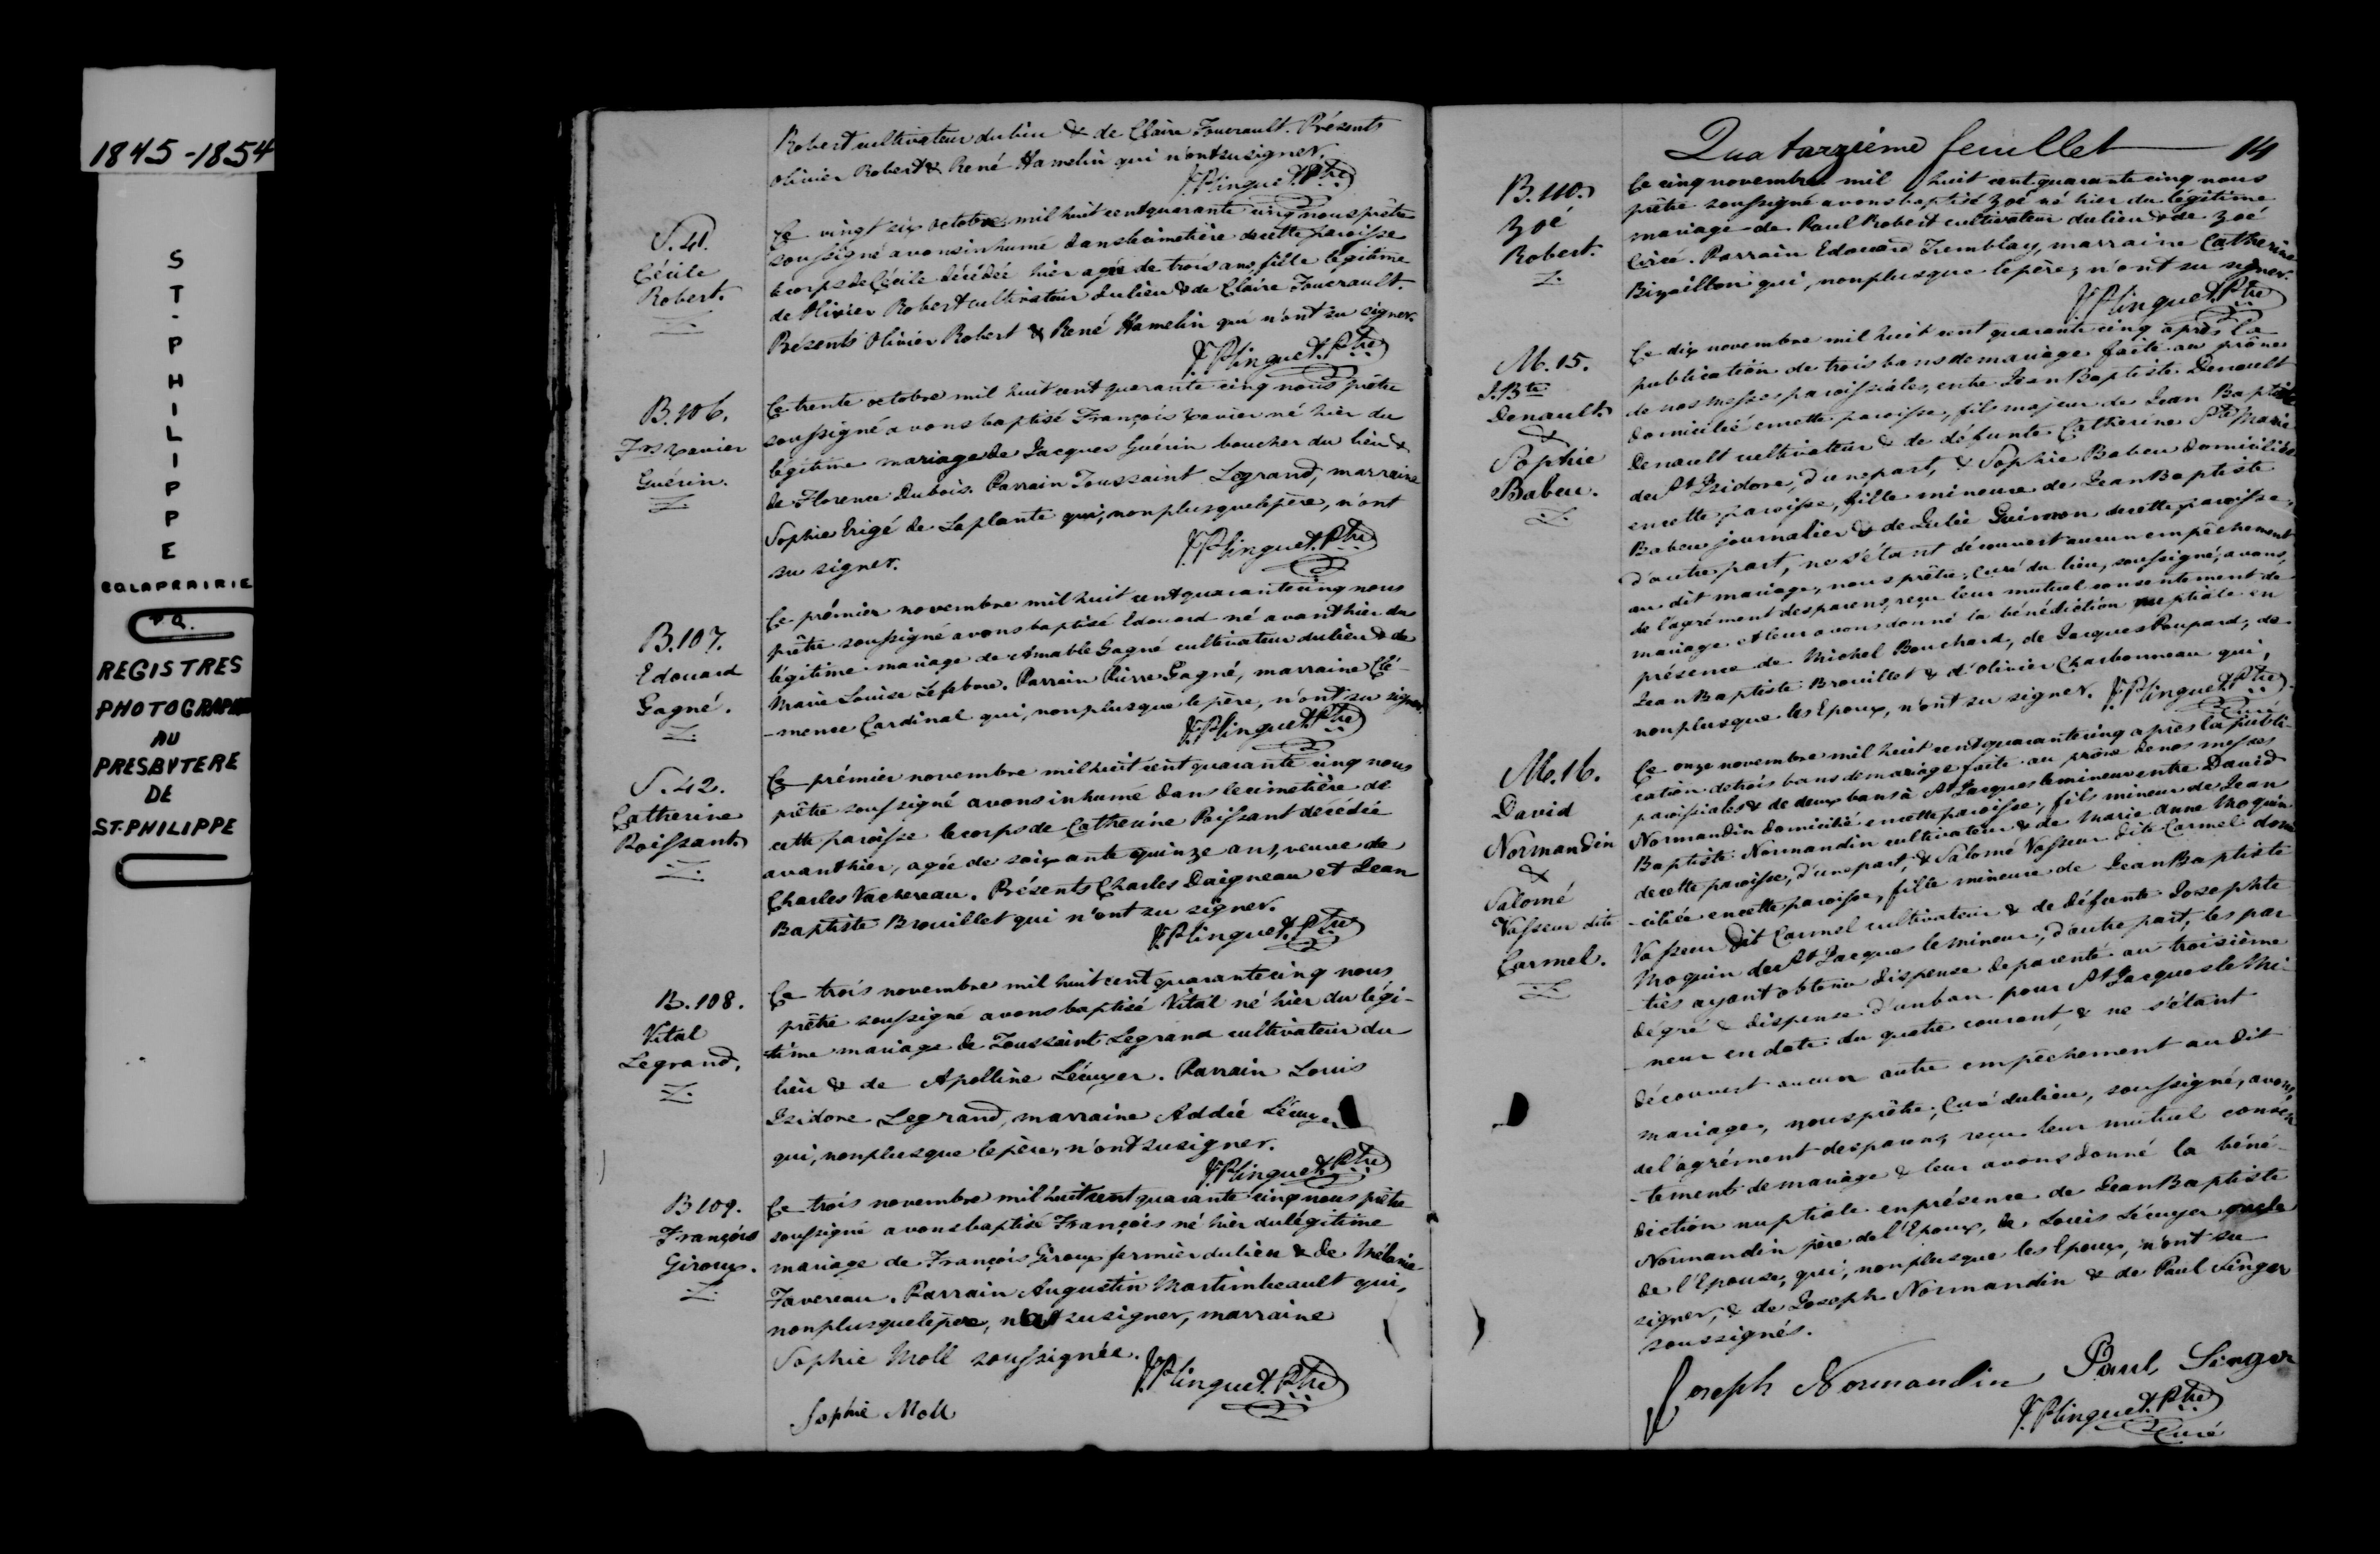 1845-1854
S
T
-
P
H
I
L
I
P
P
E
CO LAPRAIRIE
P.Q.
REGISTRES
PHOTOGRAPHIÉS
AU
PRESBYTERE
DE
ST-PHILIPPE
Robert cultivateur du lieu & de Claire Foucrault. Présents
Olivier Robert & René Hamelin qui n'ont su signer.
F. Plinguet. Ptre
S. 41.
Cécile
Robert.
Ce vingt six octobre mil huit cent quarante cinq nous prêtre
soussigné avons inhumé dans le cimetière de cette paroisse
le corps de Cécile décédée hier agée de trois ans, fille légitime
de Olivier Robert cultivateur du lieu & de Claire Foucrault.
Présents Olivier Robert & René Hamelin qui n'ont su signer.
F. Plinguet. Ptre
B. 106.
Frs Xavier
Guérin.
Ce trente octobre mil huit cent quarante cinq nous prêtre
soussigné avons baptisé François Xavier né hier du
légitime mariage de Jacques Guérin boucher du lieu &
de Florence Dubois. Parrain Toussaint Legrand, marraine
Sophie Brigé de Laplante qui, non plus que le père, n'ont
su signer.
F. Plinguet. Ptre
B. 107.
Edouard
Gagné.
Ce prémier novembre mil huit cent quarante cinq nous
prêtre soussigné avons baptisé Edouard né avant hier du
légitime mariage de Amable Gagné cultivateur du lieu & de
Marie Louise Lefebvre. Parrain Pierre Gagné, marraine Clé-
-mence Cardinal qui, non plus que le père, n'ont su signer.
F. Plinguet. Ptre
S. 42.
Catherine
Poissant.
Ce prémier novembre mil huit cent quarante cinq nous
prêtre soussigné avons inhumé dans le cimetière de
cette paroisse le corps de Catherine Poissant décédée
avant hier, agée de soixante quinze ans, veuve de
Charles Vachereau. Présents Charles Daigneau et Jean
Baptiste Brouillet qui n'ont su signer.
F. Plinguet. Ptre
B. 108.
Vital
Legrand.
Ce trois novembre mil huit cent quarante cinq nous
prêtre soussigné avons baptisé Vital né hier du légi-
time mariage de Toussaint Legrand cultivateur du
lieu & de Apolline Lécuyer. Parrain Louis
Isidore Legrand, marraine Addée Lécuyer
qui, non plus que le père, n'ont su signer.
F. Plinguet. Ptre
B 109.
François
Giroux.
Ce trois novembre mil huit cent quarante cinq nous prêtre
soussigné avons baptisé François né hier du légitime
mariage de François Giroux fermier du lieu & de Mélanie
Favereau. Parrain Augustin Martimbeault qui,
non plus que le père, n'ont su signer, marraine
Sophie Moll soussignée.
F. Plinguet. Ptre
Sophie Moll
Quatorzième feuillet 14
B. 110.
Zoé
Robert.
Ce cinq novembre mil huit cent quarante cinq nous
prêtre soussigné avons baptisé Zoé né hier du légitime
mariage de Paul Robert cultivateur du lieu & de Zoé
Ciré. Parrain Edouard Tremblay, marraine Catherine
Bizaillon qui, non plus que le père, n'ont su signer.
F. Plinguet. Ptre
M. 15.
J. Bte
Denault
&
Sophie
Babeu.
Ce dix novembre mil huit cent quarante cinq après la
publication de trois bans de mariage faite au prône
de nos messes paroissiales, entre Jean Baptiste Denault
domicilié en cette paroisse, fils majeur de Jean Baptiste
Denault cultivateur & de défunte Catherine Ste Marie
de St Isidore, d'une part, & Sophie Babeu domiciliée
en cette paroisse, fille mineure de Jean Baptiste
Babeu journalier & de Julie Guimon de cette paroisse,
d'autre part, ne s'étant découvert aucun empêchement
au dit mariage, nous prêtre, Curé du lieu, soussigné, avons,
de l'agrément des parens, reçu leur mutuel consentement de
mariage et leur avons donné la bénédiction nuptiale en
présence de Michel Bouchard, de Jacques Poupard, de
Jean Baptiste Brouillet & d'Olivier Charbonneau qui,
non plus que les Epoux, n'ont su signer. F. Plinguet. Ptre
Curé
M. 16.
David
Normandin
&
Salomé
Vasseur dite
Carmel.
Ce onze novembre mil huit cent quarante cinq après la publi-
cation de trois bans de mariage faite au prône de nos messes
paroissiales & de deux bans à St Jacques le mineur entre David
Normandin domicilié en cette paroisse, fils mineur de Jean
Baptiste Normandin cultivateur & de Marie Anne Moquin
de cette paroisse, d'une part, & Salomé Vasseur dite Carmel domi
-ciliée en cette paroisse, fille mineure de Jean Baptiste
Vasseur dit Carmel cultivateur & de défunte Josephte
Moquin de St Jacques le mineur, d'autre part, les par
-ties ayant obtenu dispense de parenté au troisième
dégré & dispense d'un ban pour St Jacques le Mi-
-neur en date du quatre courant, & ne s'étant
découvert aucun autre empêchement au dit
mariage, nous prêtre, Curé du lieu, soussigné, avons,
de l'agrément des parens, reçu leur mutuel consen
-tement de mariage & leur avons donné la béné-
diction nuptiale en présence de Jean Baptiste
Normandin père de l'Epoux, de Louis Lécuyer oncle
de l'Epouse, qui, non plus que les Epoux, n'ont su
signer, & de Joseph Normandin & de Paul Singer
soussignés.
Joseph Normandin Paul Singer
F. Plinguet. Ptre
Curé